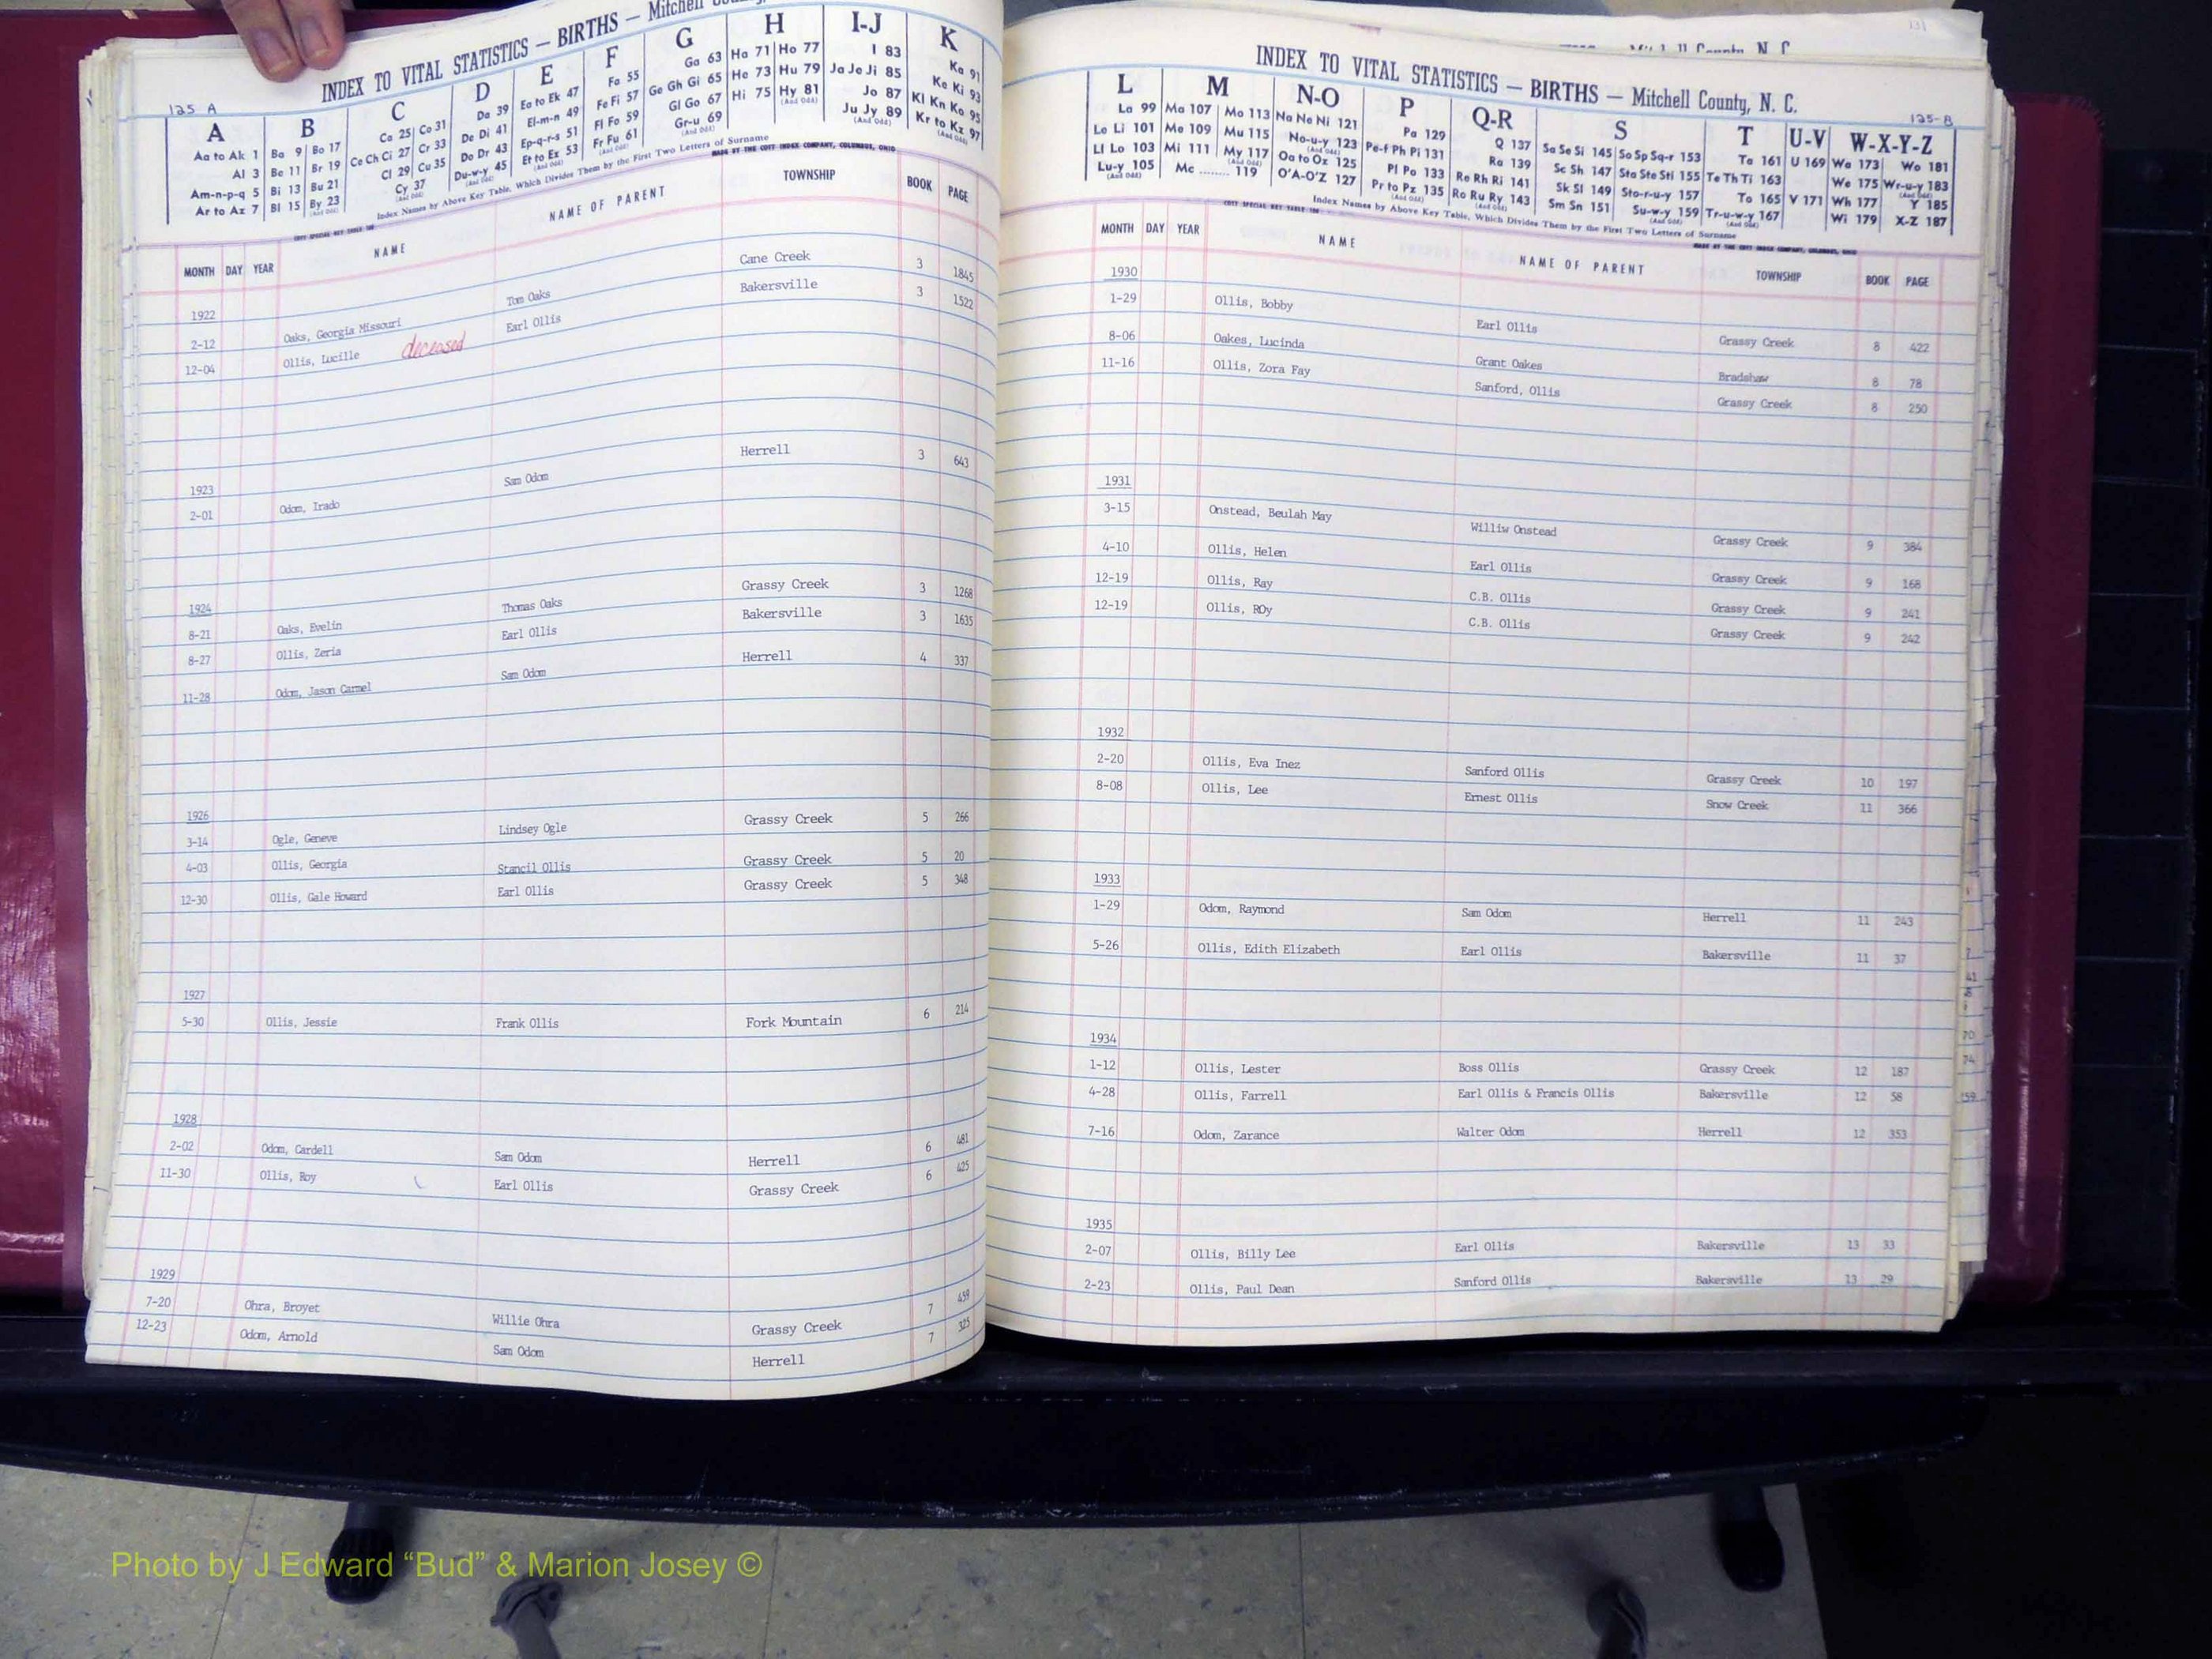 INDEX TO VITAL STATISTICS — BIRTHS — Mitchell
125 A
A B C D E F G H I-J K
Aa to Ak 1 Ba 9 Bo 17 Ca 25 Co 31 Da 39 Ea to Ek 47 Fa 55 Ga 63 Ha 71 Ho 77 I 83 Ka 91
Al 3 Be 11 Br 19 Ce Ch Ci 27 Cr 33 De Di 41 El-m-n 49 Fe Fi 57 Ge Gh Gi 65 He 73 Hu 79 Ja Je Ji 85 Ke Ki 93
Am-n-p-q 5 Bi 13 Bu 21 Cl 29 Cu 35 Do Dr 43 Ep-q-r-s 51 Fl Fo 59 Gl Go 67 Hi 75 Hy 81 Jo 87 Kl Kn Ko 95
Ar to Az 7 Bl 15 By 23 Cy 37 Du-w-y 45 Et to Ex 53 Fr Fu 61 Gr-u 69 Ju Jy 89 Kr to Kz 97
Index Names by Above Key Table, Which Divides Them by the First Two Letters of Surname
MADE BY THE COTT INDEX COMPANY, COLUMBUS, OHIO
MONTH DAY YEAR NAME NAME OF PARENT TOWNSHIP BOOK PAGE
1922
2-12 Oaks, Georgia Missouri Tom Oaks Cane Creek 3 1845
12-04 Ollis, Lucille deceased Earl Ollis Bakersville 3 1522
1923
2-01 Odom, Irado Sam Odom Herrell 3 643
1924
8-21 Oaks, Evelin Thomas Oaks Grassy Creek 3 1268
8-27 Ollis, Zeria Earl Ollis Bakersville 3 1635
11-28 Odom, Jason Carmel Sam Odom Herrell 4 337
1926
3-14 Ogle, Geneve Lindsey Ogle Grassy Creek 5 266
4-03 Ollis, Georgia Stancil Ollis Grassy Creek 5 20
12-30 Ollis, Gale Howard Earl Ollis Grassy Creek 5 348
1927
5-30 Ollis, Jessie Frank Ollis Fork Mountain 6 214
1928
2-02 Odom, Cardell Sam Odom Herrell 6 481
11-30 Ollis, Roy Earl Ollis Grassy Creek 6 425
1929
7-20 Ohra, Broyet Willie Ohra Grassy Creek 7 459
12-23 Odom, Arnold Sam Odom Herrell 7 325
131
INDEX TO VITAL STATISTICS — BIRTHS — Mitchell County, N. C.
125-B
L M N-O P Q-R S T U-V W-X-Y-Z
La 99 Ma 107 Mo 113 Na Ne Ni 121 Pa 129 Q 137 Sa Se Si 145 So Sp Sq-r 153 Ta 161 U 169 Wa 173 Wo 181
Le Li 101 Me 109 Mu 115 No-u-y 123 Pe-f Ph Pi 131 Ra 139 Sc Sh 147 Sta Ste Sti 155 Te Th Ti 163 We 175 Wr-u-y 183
Ll Lo 103 Mi 111 My 117 Oa to Oz 125 Pl Po 133 Re Rh Ri 141 Sk Sl 149 Sto-r-u-y 157 To 165 V 171 Wh 177 Y 185
Lu-y 105 Mc ........ 119 O'A-O'Z 127 Pr to Pz 135 Ro Ru Ry 143 Sm Sn 151 Su-w-y 159 Tr-u-w-y 167 Wi 179 X-Z 187
Index Names by Above Key Table, Which Divides Them by the First Two Letters of Surname
MONTH DAY YEAR NAME NAME OF PARENT TOWNSHIP BOOK PAGE
1930
1-29 Ollis, Bobby Earl Ollis Grassy Creek 8 422
8-06 Oakes, Lucinda Grant Oakes Bradshaw 8 78
11-16 Ollis, Zora Fay Sanford, Ollis Grassy Creek 8 250
1931
3-15 Onstead, Beulah May Williw Onstead Grassy Creek 9 384
4-10 Ollis, Helen Earl Ollis Grassy Creek 9 168
12-19 Ollis, Ray C.B. Ollis Grassy Creek 9 241
12-19 Ollis, ROy C.B. Ollis Grassy Creek 9 242
1932
2-20 Ollis, Eva Inez Sanford Ollis Grassy Creek 10 197
8-08 Ollis, Lee Ernest Ollis Snow Creek 11 366
1933
1-29 Odom, Raymond Sam Odom Herrell 11 243
5-26 Ollis, Edith Elizabeth Earl Ollis Bakersville 11 37
1934
1-12 Ollis, Lester Boss Ollis Grassy Creek 12 187
4-28 Ollis, Farrell Earl Ollis & Francis Ollis Bakersville 12 58
7-16 Odom, Zarance Walter Odom Herrell 12 353
1935
2-07 Ollis, Billy Lee Earl Ollis Bakersville 13 33
2-23 Ollis, Paul Dean Sanford Ollis Bakersville 13 29
Photo by J Edward “Bud” & Marion Josey ©